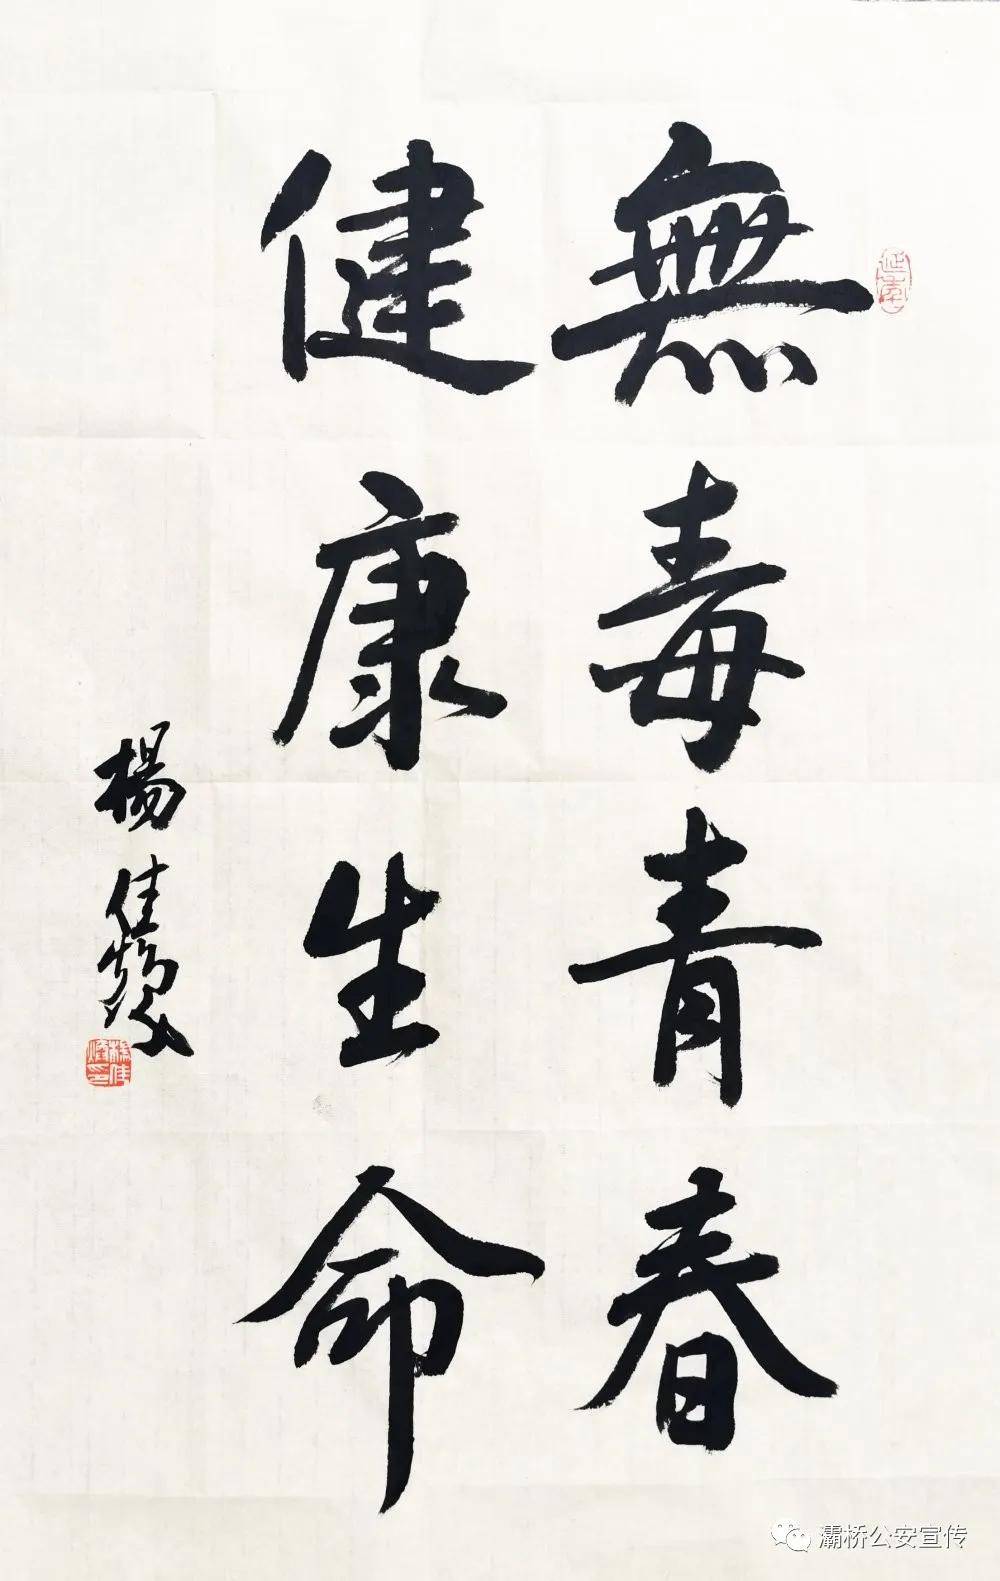 無毒青春
健康生命
楊佳
灞桥公安宣传